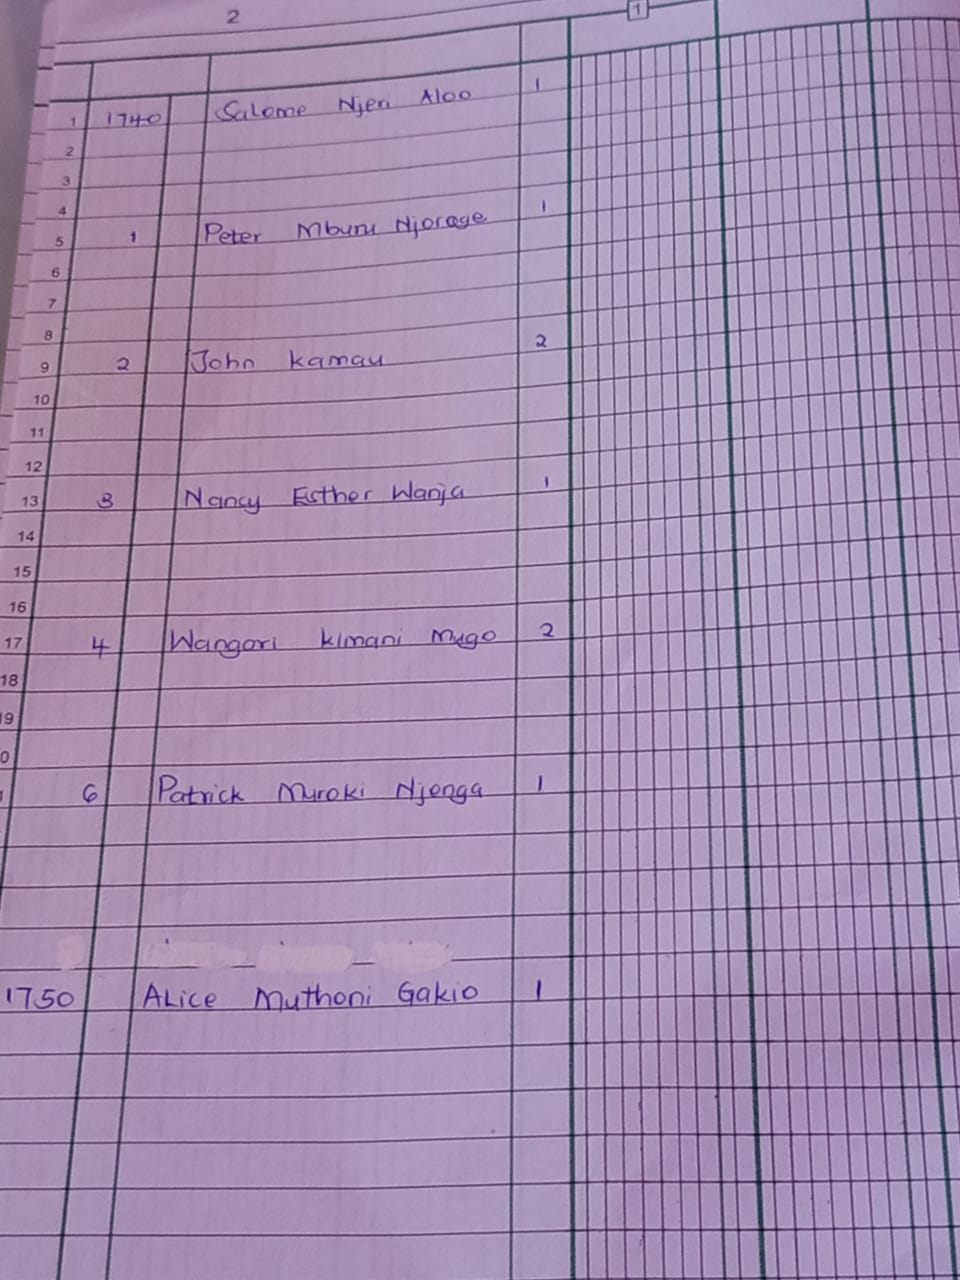 2
1
1 1740 Salome Njeri Aloo 1
2
3
4
5 1 Peter Mburu Njorage 1
6
7
8
9 2 John Kamau 2
10
11
12
13 3 Nancy Esther Wanja 1
14
15
16
17 4 Wangari Kimani Mugo 2
18
19
0
6 Patrick Muroki Njenga 1
1750 Alice Muthoni Gakio 1